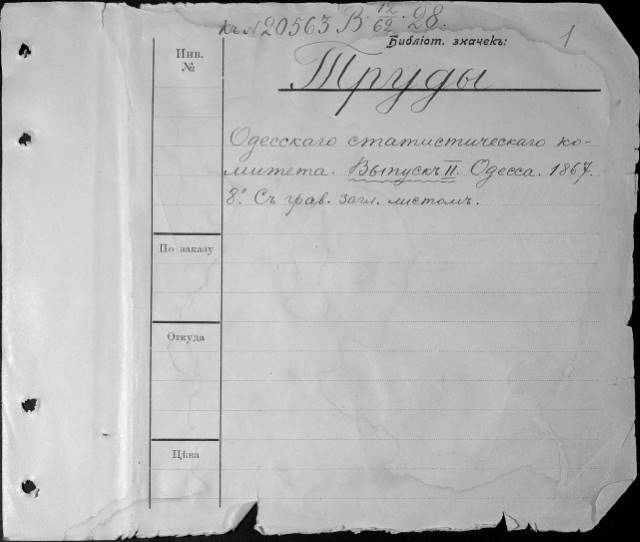 Къ № 20563 В. 12/62 . 28.
Библіот. значекъ:
1
Инв. №
Труды
Одесскаго статистическаго ко-
митета. Выпускъ II. Одесса. 1867.
8°. Съ грав. загл. листомъ.
По заказу
Откуда
Цѣна